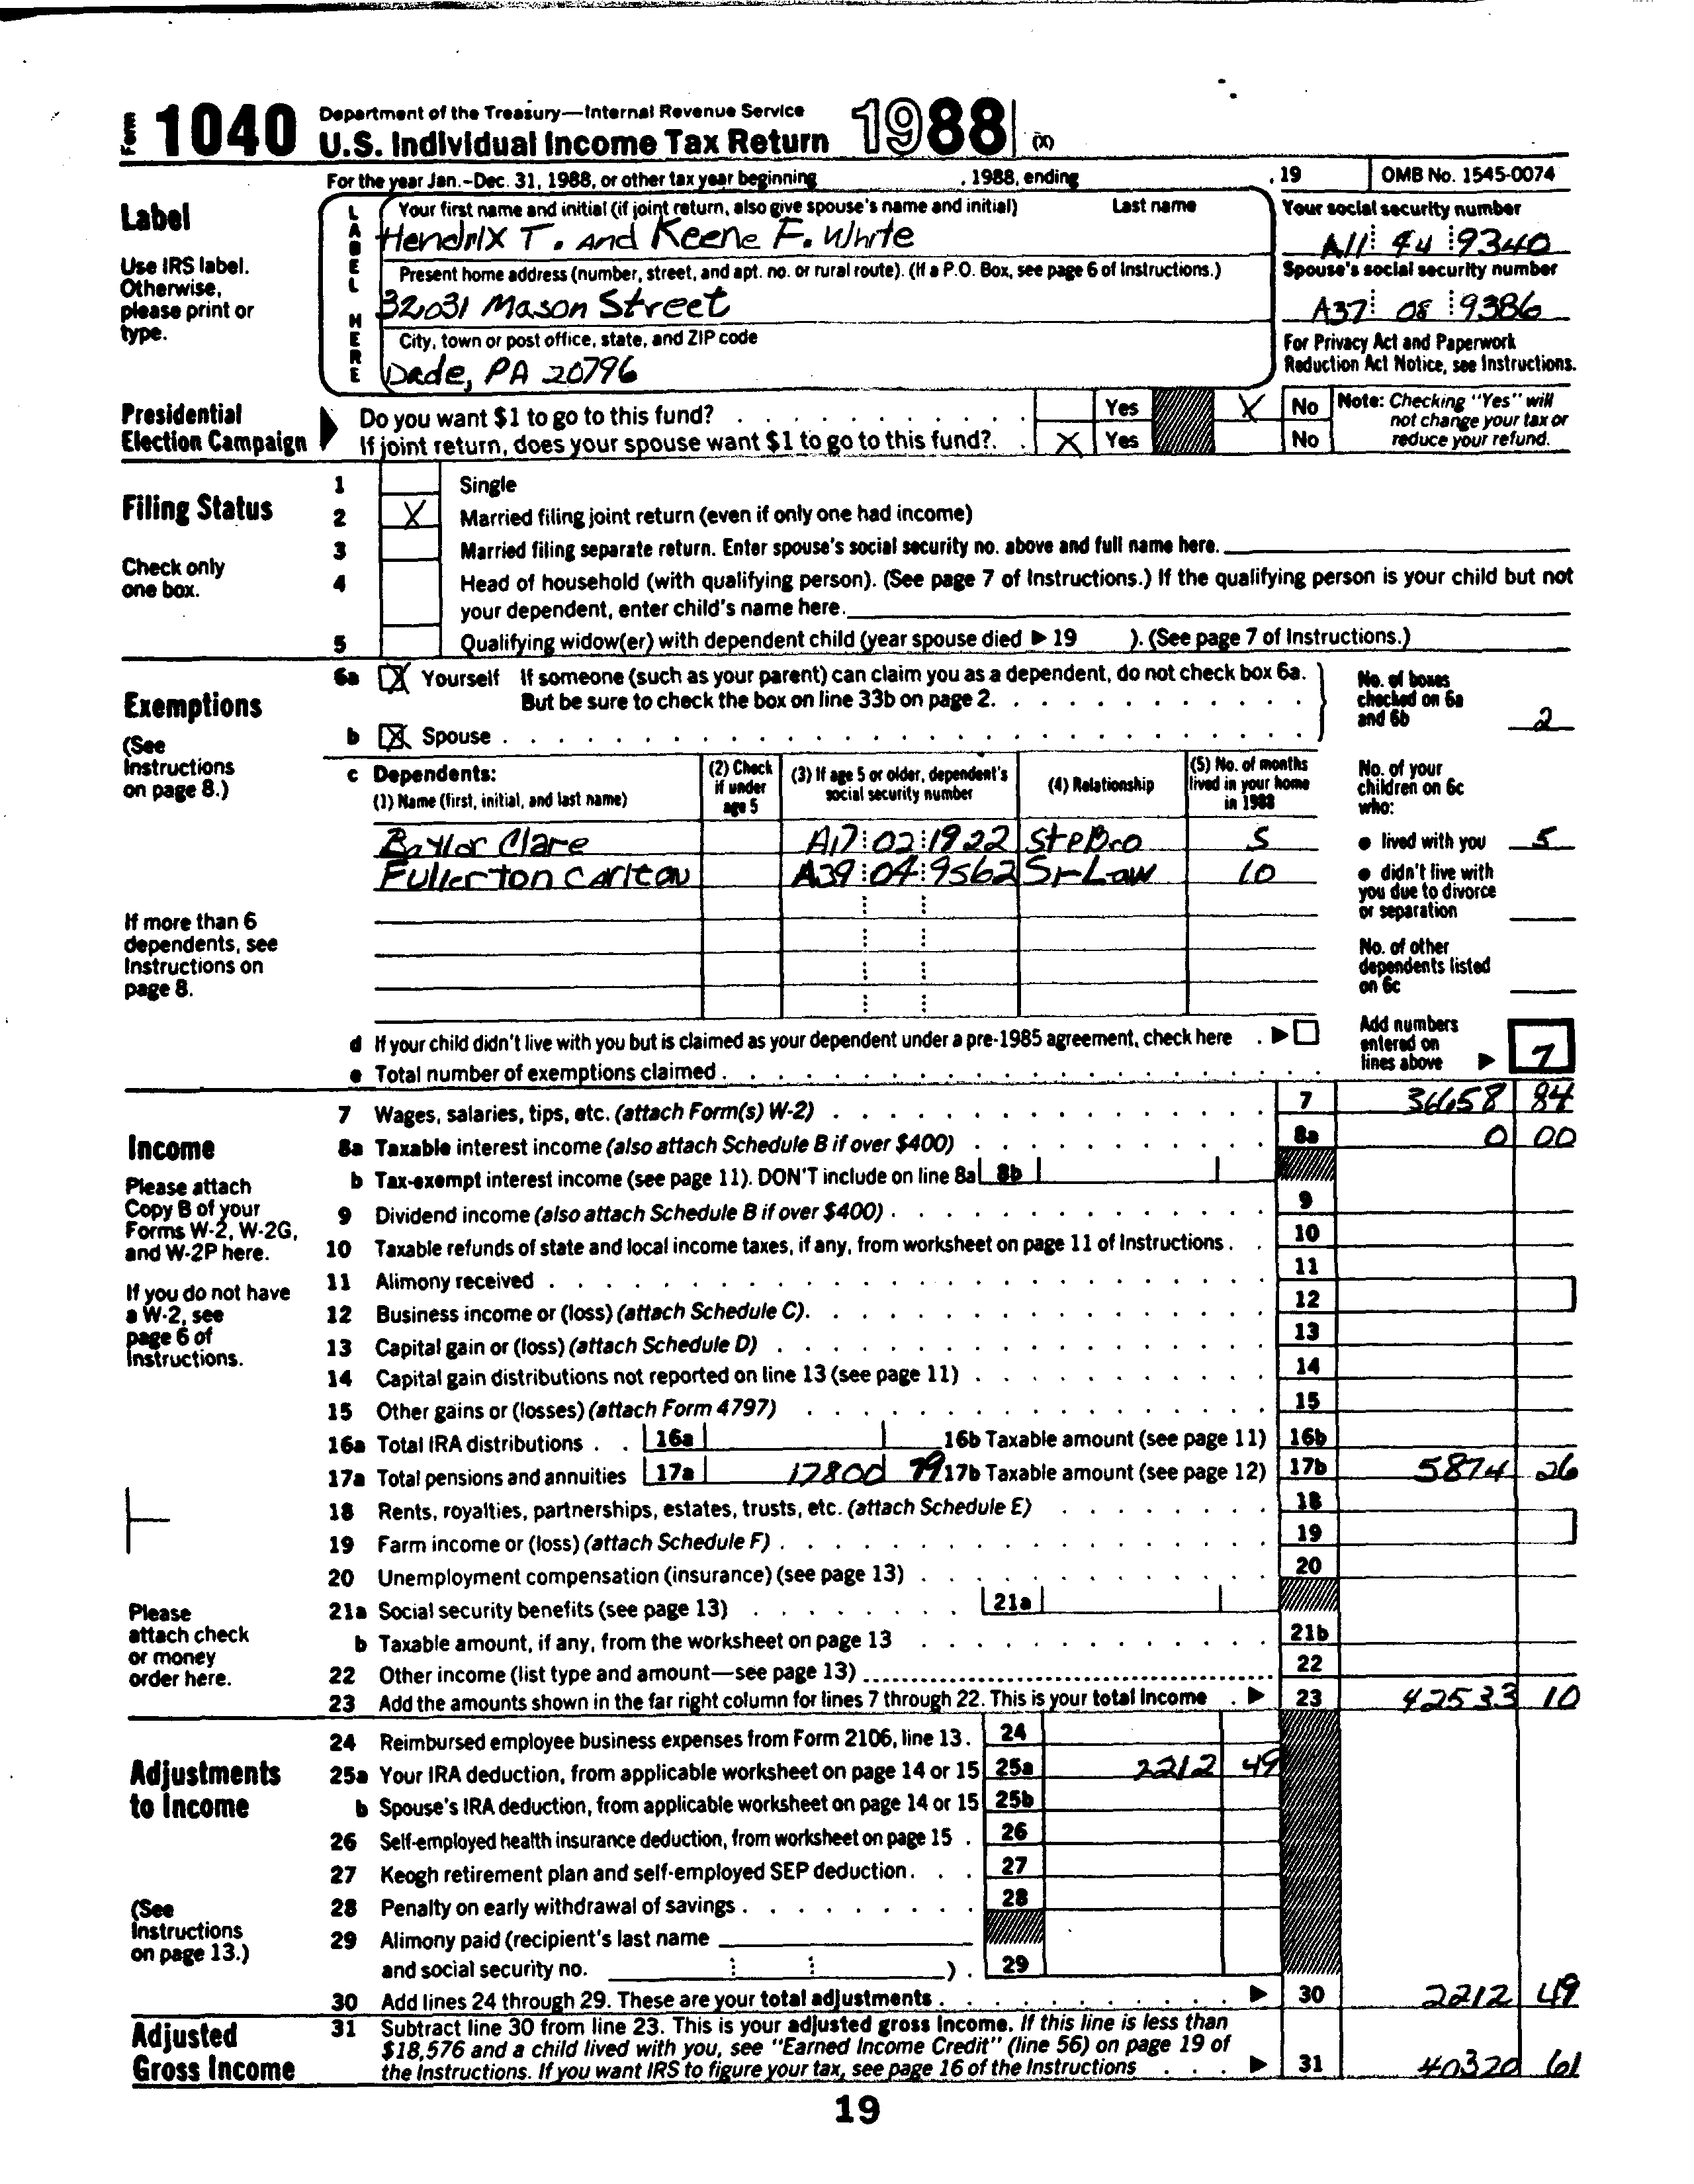 Form 1040 Department of the Treasury—Internal Revenue Service
U.S. Individual Income Tax Return 1988 (X)
For the year Jan.-Dec. 31, 1988, or other tax year beginning , 1988, ending , 19 OMB No. 1545-0074
Label
Use IRS label. Otherwise, please print or type.
LABEL HERE
Your first name and initial (if joint return, also give spouse's name and initial) Last name
Hendrix T. And Keene F. White
Your social security number
A11 44 9340
Present home address (number, street, and apt. no. or rural route). (If a P.O. Box, see page 6 of Instructions.)
32031 Mason Street
Spouse's social security number
A37 08 9386
City, town or post office, state, and ZIP code
Dade, PA 20796
For Privacy Act and Paperwork
Reduction Act Notice, see Instructions.
Presidential
Election Campaign
Do you want $1 to go to this fund? Yes X No
If joint return, does your spouse want $1 to go to this fund? X Yes No
Note: Checking "Yes" will
not change your tax or
reduce your refund.
Filing Status
Check only
one box.
1 Single
2 X Married filing joint return (even if only one had income)
3 Married filing separate return. Enter spouse's social security no. above and full name here.
4 Head of household (with qualifying person). (See page 7 of Instructions.) If the qualifying person is your child but not
your dependent, enter child's name here.
5 Qualifying widow(er) with dependent child (year spouse died ▶ 19 ). (See page 7 of Instructions.)
Exemptions
(See
Instructions
on page 8.)
6a X Yourself If someone (such as your parent) can claim you as a dependent, do not check box 6a.
But be sure to check the box on line 33b on page 2.
b X Spouse
No. of boxes
checked on 6a
and 6b 2
c Dependents:
(1) Name (first, initial, and last name)
(2) Check
if under
age 5
(3) If age 5 or older, dependent's
social security number
(4) Relationship
(5) No. of months
lived in your home
in 1988
Baylor Clare A17 02 1922 StepBro 5
Fullerton Carlton A39 04 9562 Sr-Law 10
No. of your
children on 6c
who:
• lived with you 5
• didn't live with
you due to divorce
or separation
No. of other
dependents listed
on 6c
If more than 6
dependents, see
Instructions on
page 8.
d If your child didn't live with you but is claimed as your dependent under a pre-1985 agreement, check here ▶
e Total number of exemptions claimed
Add numbers
entered on
lines above ▶ 7
Income
Please attach
Copy B of your
Forms W-2, W-2G,
and W-2P here.
If you do not have
a W-2, see
page 6 of
Instructions.
Please
attach check
or money
order here.
7 Wages, salaries, tips, etc. (attach Form(s) W-2) 7 36658 84
8a Taxable interest income (also attach Schedule B if over $400) 8a 0 00
b Tax-exempt interest income (see page 11). DON'T include on line 8a 8b
9 Dividend income (also attach Schedule B if over $400) 9
10 Taxable refunds of state and local income taxes, if any, from worksheet on page 11 of Instructions 10
11 Alimony received 11
12 Business income or (loss) (attach Schedule C) 12
13 Capital gain or (loss) (attach Schedule D) 13
14 Capital gain distributions not reported on line 13 (see page 11) 14
15 Other gains or (losses) (attach Form 4797) 15
16a Total IRA distributions 16a 16b Taxable amount (see page 11) 16b
17a Total pensions and annuities 17a 17800 79 17b Taxable amount (see page 12) 17b 5874 26
18 Rents, royalties, partnerships, estates, trusts, etc. (attach Schedule E) 18
19 Farm income or (loss) (attach Schedule F) 19
20 Unemployment compensation (insurance) (see page 13) 20
21a Social security benefits (see page 13) 21a
b Taxable amount, if any, from the worksheet on page 13 21b
22 Other income (list type and amount—see page 13) 22
23 Add the amounts shown in the far right column for lines 7 through 22. This is your total income ▶ 23 42533 10
Adjustments
to Income
(See
Instructions
on page 13.)
24 Reimbursed employee business expenses from Form 2106, line 13. 24
25a Your IRA deduction, from applicable worksheet on page 14 or 15 25a 2212 49
b Spouse's IRA deduction, from applicable worksheet on page 14 or 15 25b
26 Self-employed health insurance deduction, from worksheet on page 15 26
27 Keogh retirement plan and self-employed SEP deduction 27
28 Penalty on early withdrawal of savings 28
29 Alimony paid (recipient's last name
and social security no. ) 29
30 Add lines 24 through 29. These are your total adjustments ▶ 30 2212 49
Adjusted
Gross Income
31 Subtract line 30 from line 23. This is your adjusted gross income. If this line is less than
$18,576 and a child lived with you, see "Earned Income Credit" (line 56) on page 19 of
the Instructions. If you want IRS to figure your tax, see page 16 of the Instructions ▶ 31 40320 61
19